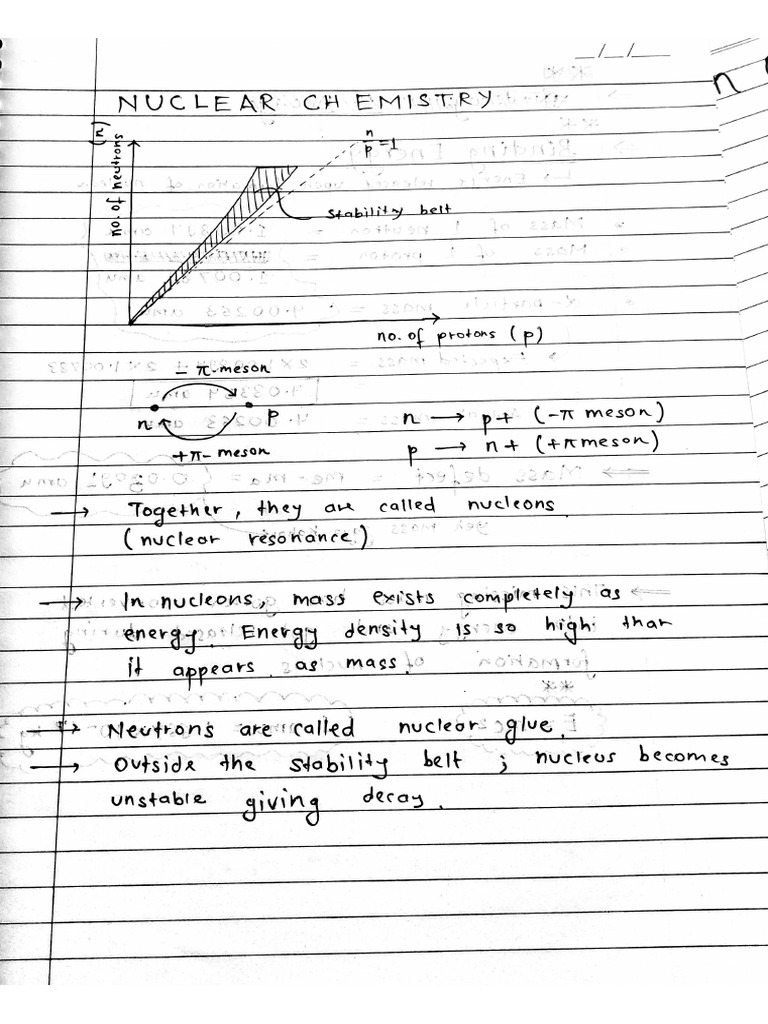 __/__/___
n
NUCLEAR CHEMISTRY
no. of neutrons (n)
n/p = 1
stability belt
no. of protons (p)
- π-meson
n p
+π- meson
n → p + (-π meson)
p → n + (+π meson)
→ Together, they are called nucleons.
(nuclear resonance)
→ In nucleons, mass exists completely as
energy. Energy density is so high that
it appears as mass.
→ Neutrons are called nuclear glue.
→ Outside the stability belt ; nucleus becomes
unstable giving decay.